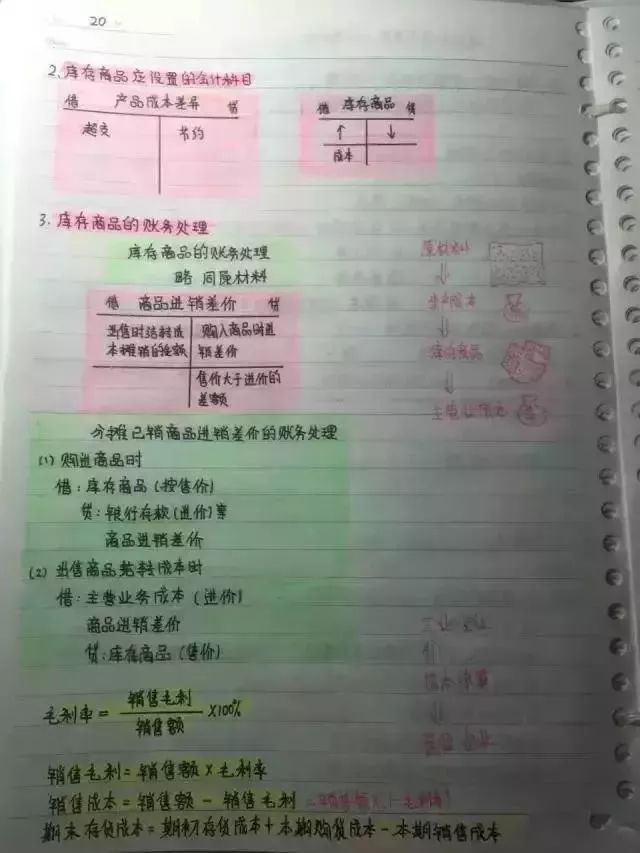 20
2.库存商品应设置的会计科目
借 产品成本差异 贷
超支 节约
借 库存商品 贷
↑ ↓
成本
3.库存商品的账务处理
库存商品的账务处理
略 同原材料
借 商品进销差价 贷
出售时结转应 购入商品时进
本摊销的差额 销差价
售价大于进价的
差额
原材料
↓
生产成本
↓
库存商品
↓
主营业务成本
分摊已销商品进销差价的账务处理
(1) 购进商品时
借:库存商品(按售价)
贷:银行存款(进价)等
商品进销差价
(2) 出售商品结转成本时
借:主营业务成本(进价)
商品进销差价
贷:库存商品(售价)
毛利率=销售毛利/销售额×100%
销售毛利=销售额×毛利率
销售成本=销售额-销售毛利
期末存货成本=期初存货成本+本期购货成本-本期销售成本